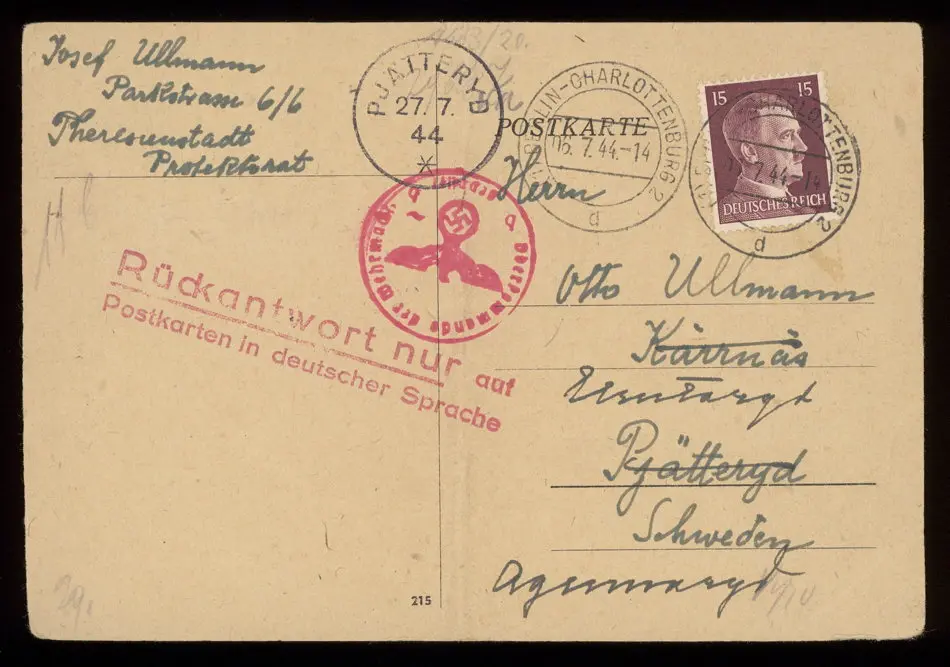 Josef Ullmann
Parkstrasse 6/6
Theresienstadt
Protektorat
PJÄTTERYD
27.7.
44
POSTKARTE
BERLIN-CHARLOTTENBURG 2
06.7.44.-14
d
15 15
DEUTSCHES REICH
CHARLOTTENBURG 2
7.44.-14
d
Herrn
Otto Ullmann
Kärrnäs
Pjätteryd
Schweden
Agunnaryd
Oberkommando der Wehrmacht
b
b
Rückantwort nur auf
Postkarten in deutscher Sprache
215
29.